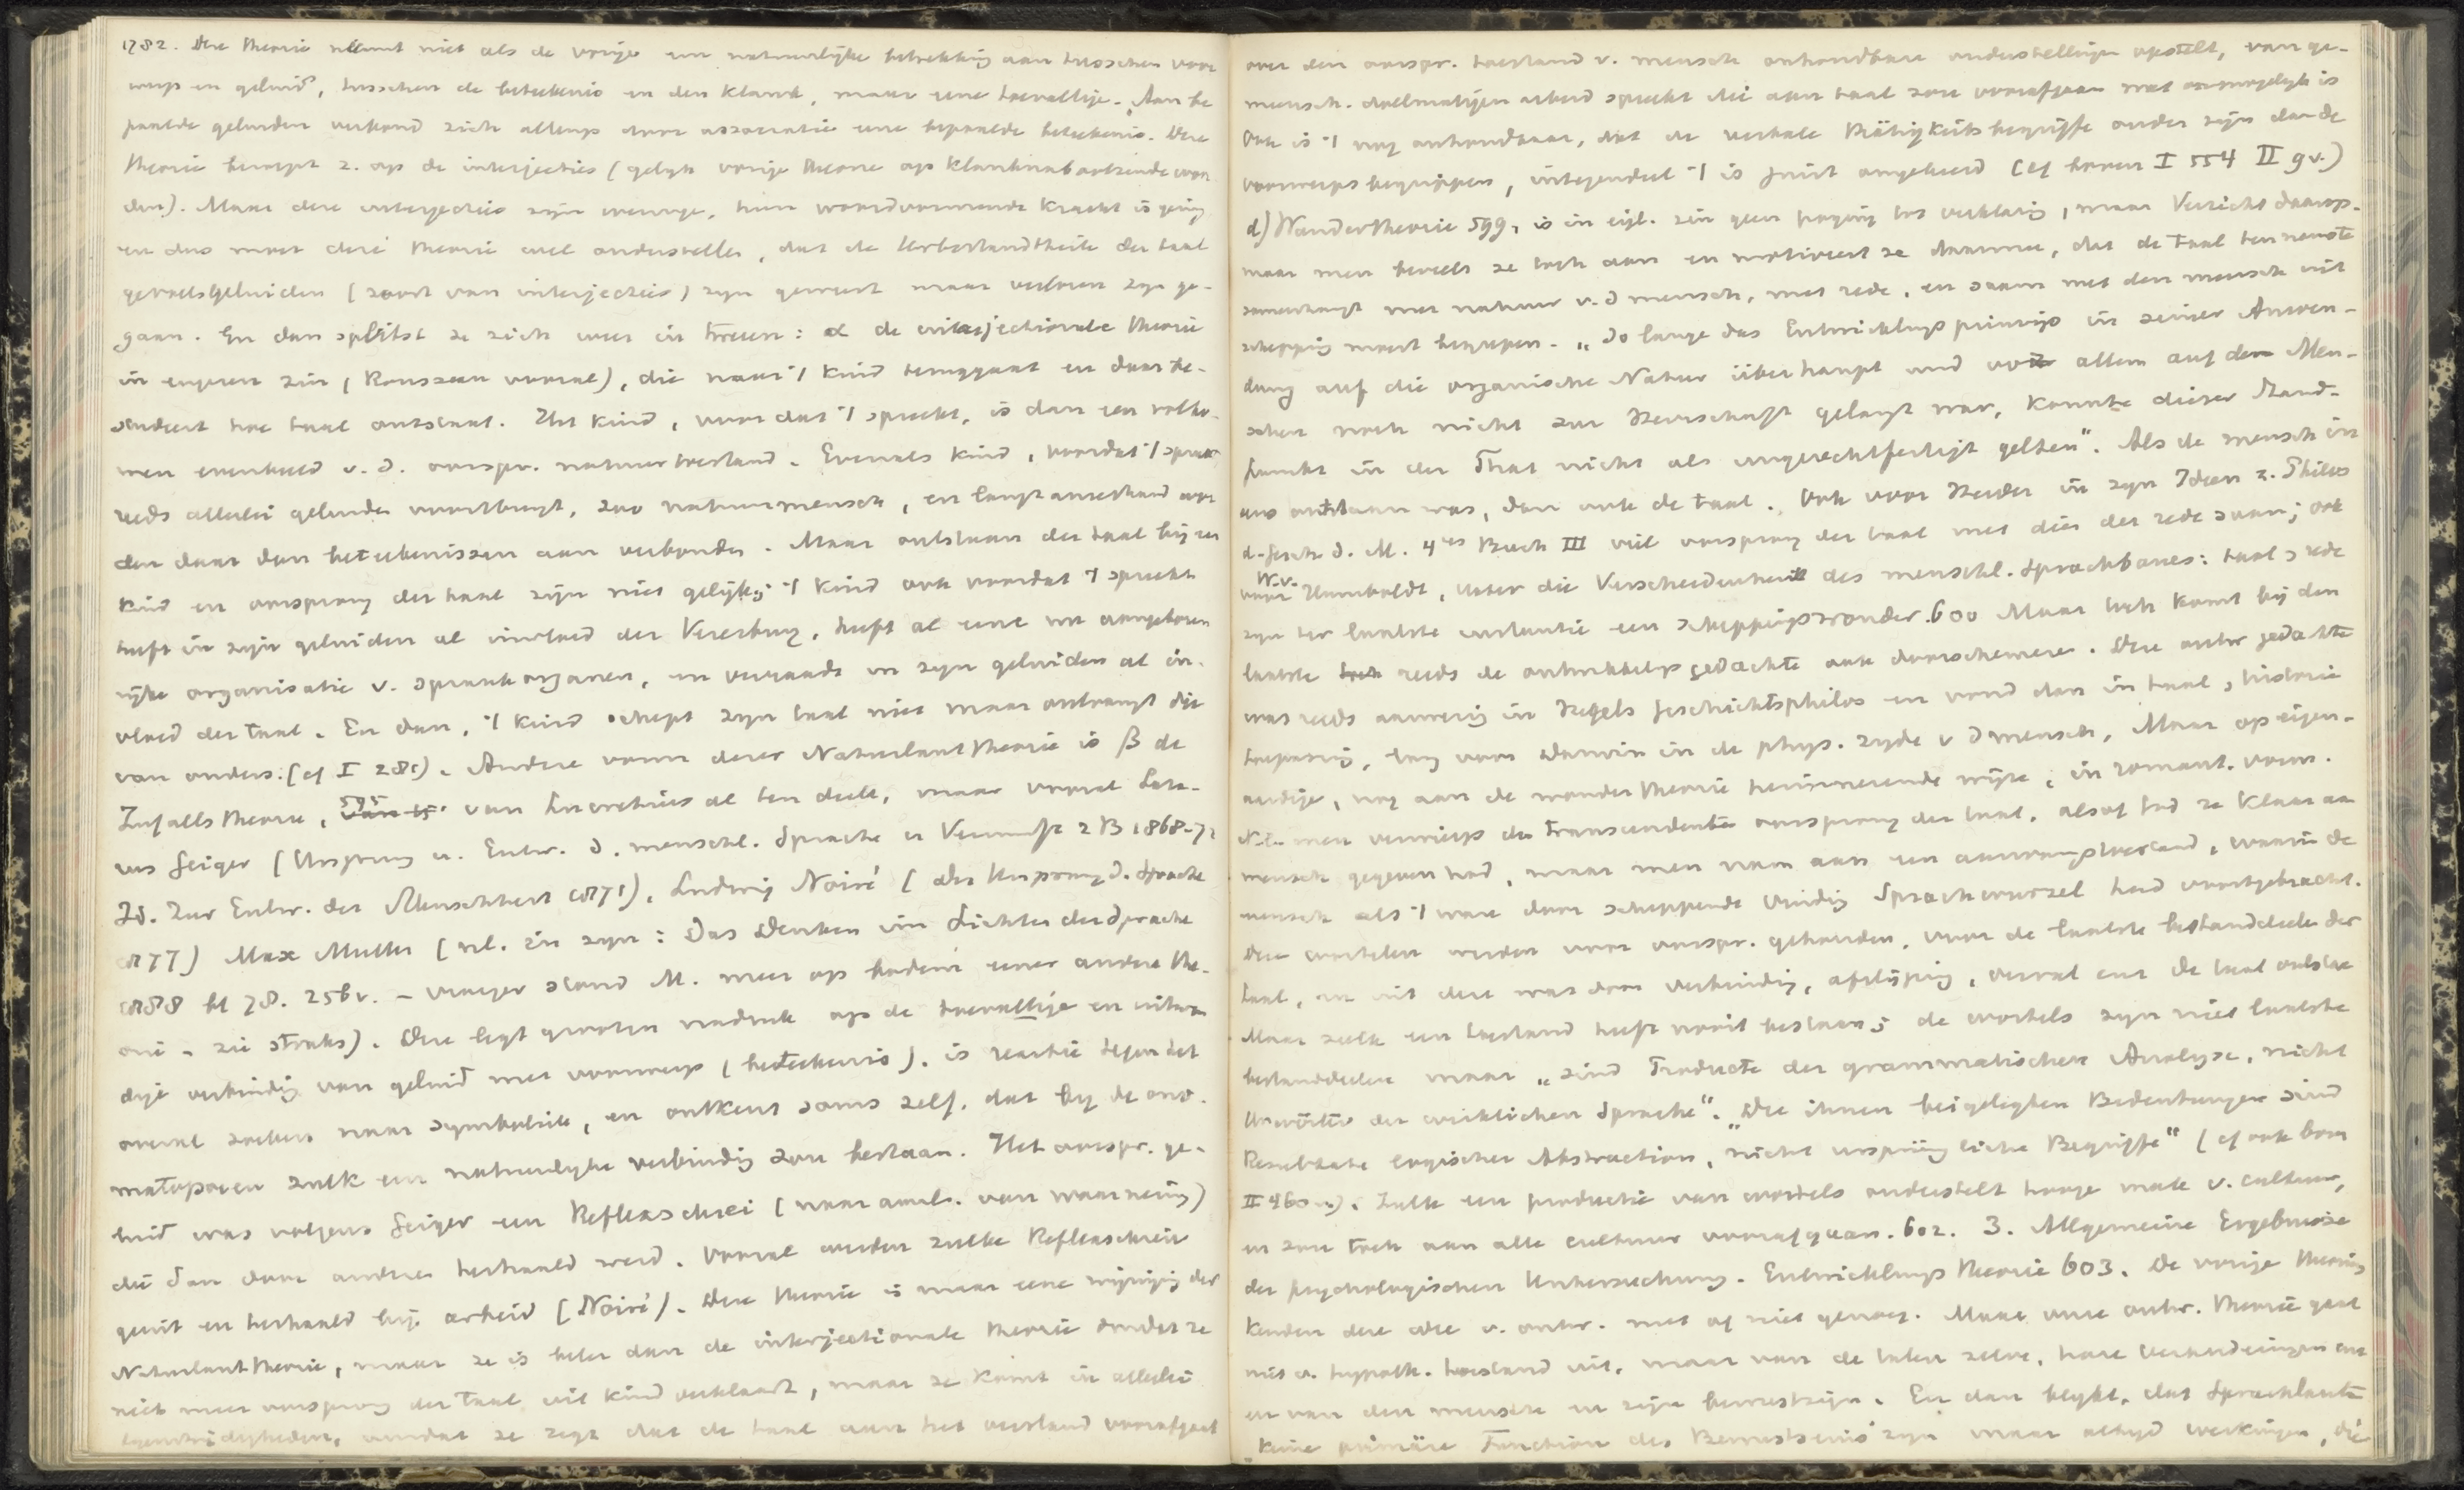 1782. Deze theorie neemt niet als de vorige een natuurlijke betrekking aan tusschen voor
werp en geluid, tusschen de beteekenis en den klank, maar eene toevallige. Aan be
paalde geluiden verbond zich allengs door associatie eene bepaalde beteekenis. Deze
theorie beroept z. op de interjecties (gelijk vorige theorie op klanknabootsende woor
den). Maar deze interjecties zijn weinige, hun woordvormende kracht is gering
en dus moet deze theorie wel onderstellen, dat de Urbestandtheile der taal
gevoelsgeluiden (soort van interjecties) zijn geweest maar verloren zijn ge-
gaan. En dan splitst ze zich weer in tweeen: α de interjectionale theorie
in engeren zin (Rousseau vooral), die naar 't kind teruggaat en daar be-
studeert hoe taal ontstaat. Het kind, voordat 't spreekt, is dan een volko-
men evenbeeld v. d. oorspr. natuurtoestand. Evenals kind, voordat 't spreekt
reeds allerlei geluiden voortbrengt, zoo natuurmensch, en langzamerhand wer
den daar dan beteekenissen aan verbonden. Maar ontstaan der taal bij een
kind en oorsprong der taal zijn niet gelijk; 't kind ook voordat 't spreekt
heeft in zijn geluiden al invloed der Vererbung, heeft al eene aangeboren
rijke organisatie v. spraakorganen, en verraadt in zijn geluiden al in-
vloed der taal. En dan, 't kind schept zijn taal niet maar ontvangt die
van anders. (cf I 281). Andere vorm dezer Naturlauttheorie is β de
Zufallstheorie, 595 van Lucretius al ten deele, maar vooral Laza-
rus Geiger (Ursprung u. Entw. d. menschl. Sprache u Vernunft 2 B 1868-72
Id. Zur Entw. der Menschheit 1871), Ludwig Noiré (der Ursprung d. Sprache
1877) Max Muller (nl. in zijn: Das Denken im Lichte der Sprache
1888 bl 78. 256 v. - vroeger stond M. meer op bodem eener andere the-
orie - zie straks). Deze legt grooten nadruk op de toevallige en uitwen
dige verbinding van geluid met voorwerp (beteekenis), is reactie tegen het
overal zoeken naar symboliek, en ontkent soms zelf, dat bij de ono-
matopoeen zulk een natuurlijke verbinding zou bestaan. Het oorspr. ge-
luid was volgens Geiger een Reflexschrei (naar aanl. van waarneming)
die dan door andren herhaald werd. Vooral werden zulke Reflexschreie
geuit en herhaald bij arbeid (Noiré). Deze theorie is maar eene wijziging der
Naturlauttheorie, maar ze is beter dan de interjectionale theorie omdat ze
niet meer oorsprong der taal uit kind verklaart, maar ze komt in allerlei
tegenstrijdigheden, omdat ze zegt dat de taal aan het verstand voorafgaat
over den oorspr. toestand v. mensch onhoudbare onderstellingen opstelt, van ge-
mensch. doelmatigen arbeid spreekt die aan taal zou voorafgaan wat onmogelijk is
Ook is 't nog onhoudbaar, dat de verbale Thätigkeitsbegriffe ouder zijn dan de
voorwerpsbegrippen, integendeel 't is juist omgekeerd (cf boven I 554 II 9 v.)
d) Wundertheorie 599, is in eigl. zin geen poging tot verklaring, maar Verzicht daarop.
maar men beveelt ze toch aan en motiveert ze daarmee, dat de taal ten nauwste
samenhangt met natuur v. d mensch, met rede, en saam met den mensch uit
schepping moet begrepen. „So lange das Entwicklungsprinzip in seiner Anwen-
dung auf die organische Natur überhaupt und vor allem auf den Men-
schen noch nicht zur Herrschaft gelangt war, konnte dieser Stand-
punkt in der That nicht als ungerechtfertigt gelten". Als de mensch in
eens ontstaan was, dan ook de taal. Ook voor Herder in zijn Ideen z. Philos
d. Gesch d. M. 4es Buch III viel oorsprong der taal met dien der rede saam; ook
voor W. v. Humboldt, ueber die Verschiedenheit des menschl. Sprachbaues: taal & rede
zijn ter laatste instantie een scheppingswonder. 600 Maar toch komt bij den
laatste reeds de ontwikkelingsgedachte ook doorschemeren. Deze ontw gedachte
was reeds aanwezig in Hegels Geschichtsphilos en vond dan in taal & historie
toepassing, lang voor Darwin in de phys. zijde v d mensch, Maar op eigen-
aardige, nog aan de wondertheorie herinnerende wijze, in romant. vorm.
Nl. men verwierp den transcendenten oorsprong der taal, alsof God ze klaar aan
mensch gegeven had, maar men nam aan een aanvangstoestand, waarin de
mensch als 't ware door scheppende vinding Sprachwurzel had voortgebracht.
Deze wortelen werden voor oorspr. gehouden, voor de laatste bestanddeelen der
taal, en uit deze was door verbinding, afslijping, verval enz de taal ontstaan
Maar zulk een toestand heeft nooit bestaan; de wortels zijn niet laatste
bestanddeelen maar „sind Producte der grammatischen Analyse, nicht
Urwörter der wirklichen Sprache". „Die ihnen beigelegten Bedeutungen sind
Resultate logischer Abstraction, nicht ursprüngliche Begriffe" (cf ook boven
II 460 v.). Zulke een productie van wortels onderstelt hooge mate v. cultuur,
en zou toch aan alle cultuur voorafgaan. 602. 3. Allgemeine Ergebnisse
der psychologischen Untersuchung. Entwicklungstheorie 603. De vorige theoriën
kenden deze idee v. ontw. niet of niet genoeg. Maar onze ontw. theorie gaat
niet v. hypoth. toestand uit, maar van de talen zelve, hare veranderingen enz
en van den mensch en zijn bewustzijn. En dan blijkt, dat Sprachlaute
keine primäre Function des Bewustseins zijn maar altijd werkingen, die